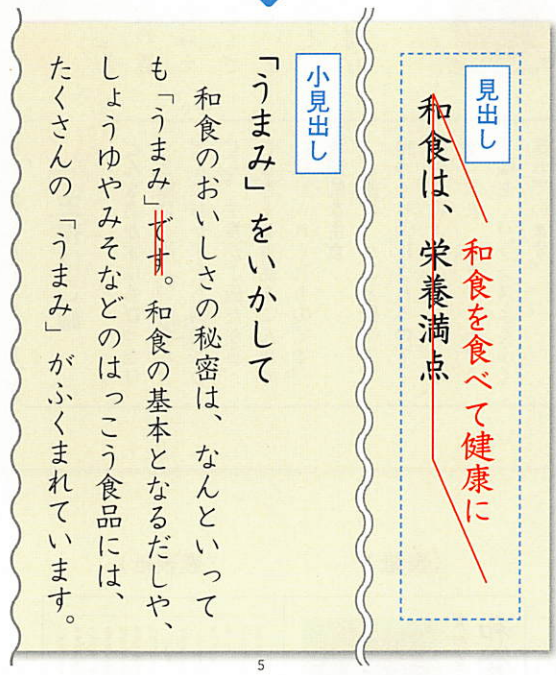 見出し
和食を食べて健康に
和食は、栄養満点
小見出し
「うまみ」をいかして
和食のおいしさの秘密は、なんといって
も「うまみ」です。和食の基本となるだしや、
しょうゆやみそなどのはっこう食品には、
たくさんの「うまみ」がふくまれています。
5